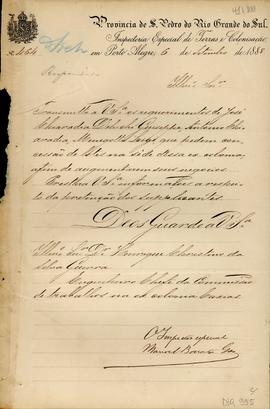 Provincia de S. Pedro do Rio Grande do Sul.
Inspectoria Especial de Terras e Colonisação,
Nº 464
em Porto Alegre, 6 de Setembro de 1888
Illmo Snr.
Transmitto a V.Sª os requerimentos de José
Chiaradia, Giuseppe, Antonio Chi-
aradia, que pedem con-
cessão de lotes na séde dessa ex colonia,
afim de augmentarem seus negocios.
Preste V.Sª informações a respei-
to da pretenção dos supplicantes.
Deos Guarde a V.Sª
Illmo Snr. Dr. Henrique Christino da
Silva Guerra
Engenheiro Chefe da Commissão
de trabalhos na ex colonia Caxias
O Inspector especial
Manoel
4